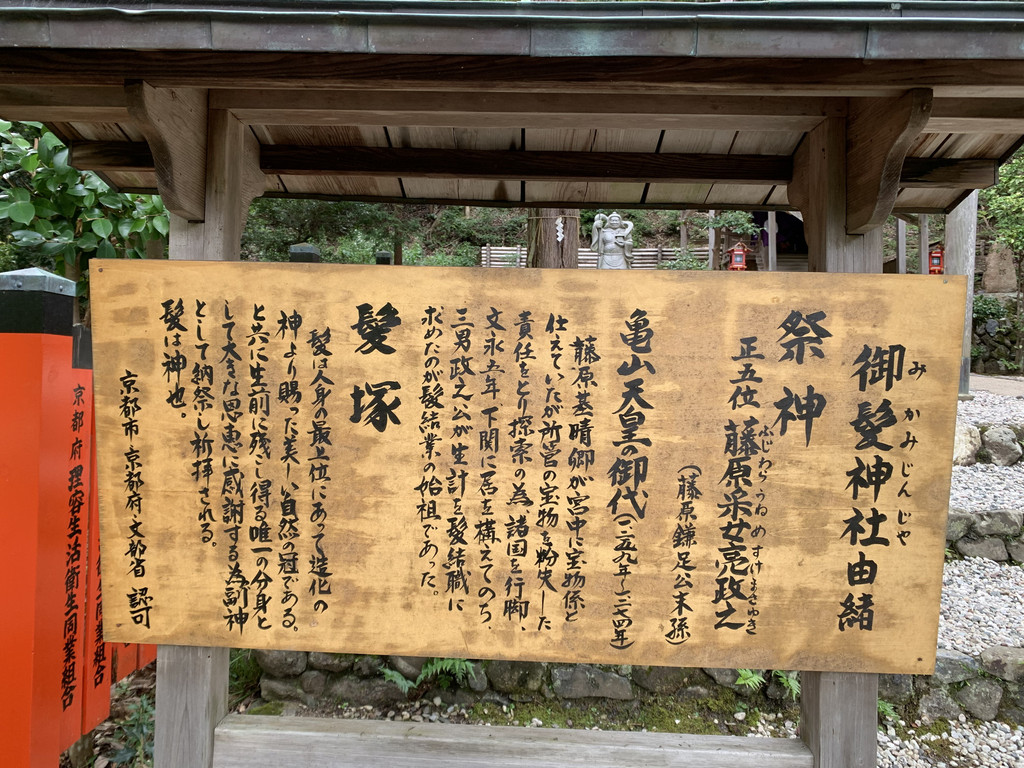 御髪神社由緒
みかみじんじゃ
祭神
正五位 藤原采女亮政之
ふじわらうねめ すけまさゆき
(藤原鎌足公末孫)
亀山天皇の御代(一二五九年~一二七四年)
藤原基晴卿が宮中に宝物係と
仕えていたが所管の宝物を紛失した
責任をとり探索の為、諸国を行脚、
文永五年 下関に居を構えてのち、
三男政之公が生計を髪結職に
求めたのが髪結業の始祖であった。
髪塚
髪は人身の最上位にあって造化の
神より賜った美しい自然の冠である。
と共に生前に残こし得る唯一の分身と
して大きな恩恵に感謝する為副神
として納祭し祈拝される。
髪は神也。
京都市 京都府・文部省 認可
生同業組合
京都府 理容生活衛生同業組合